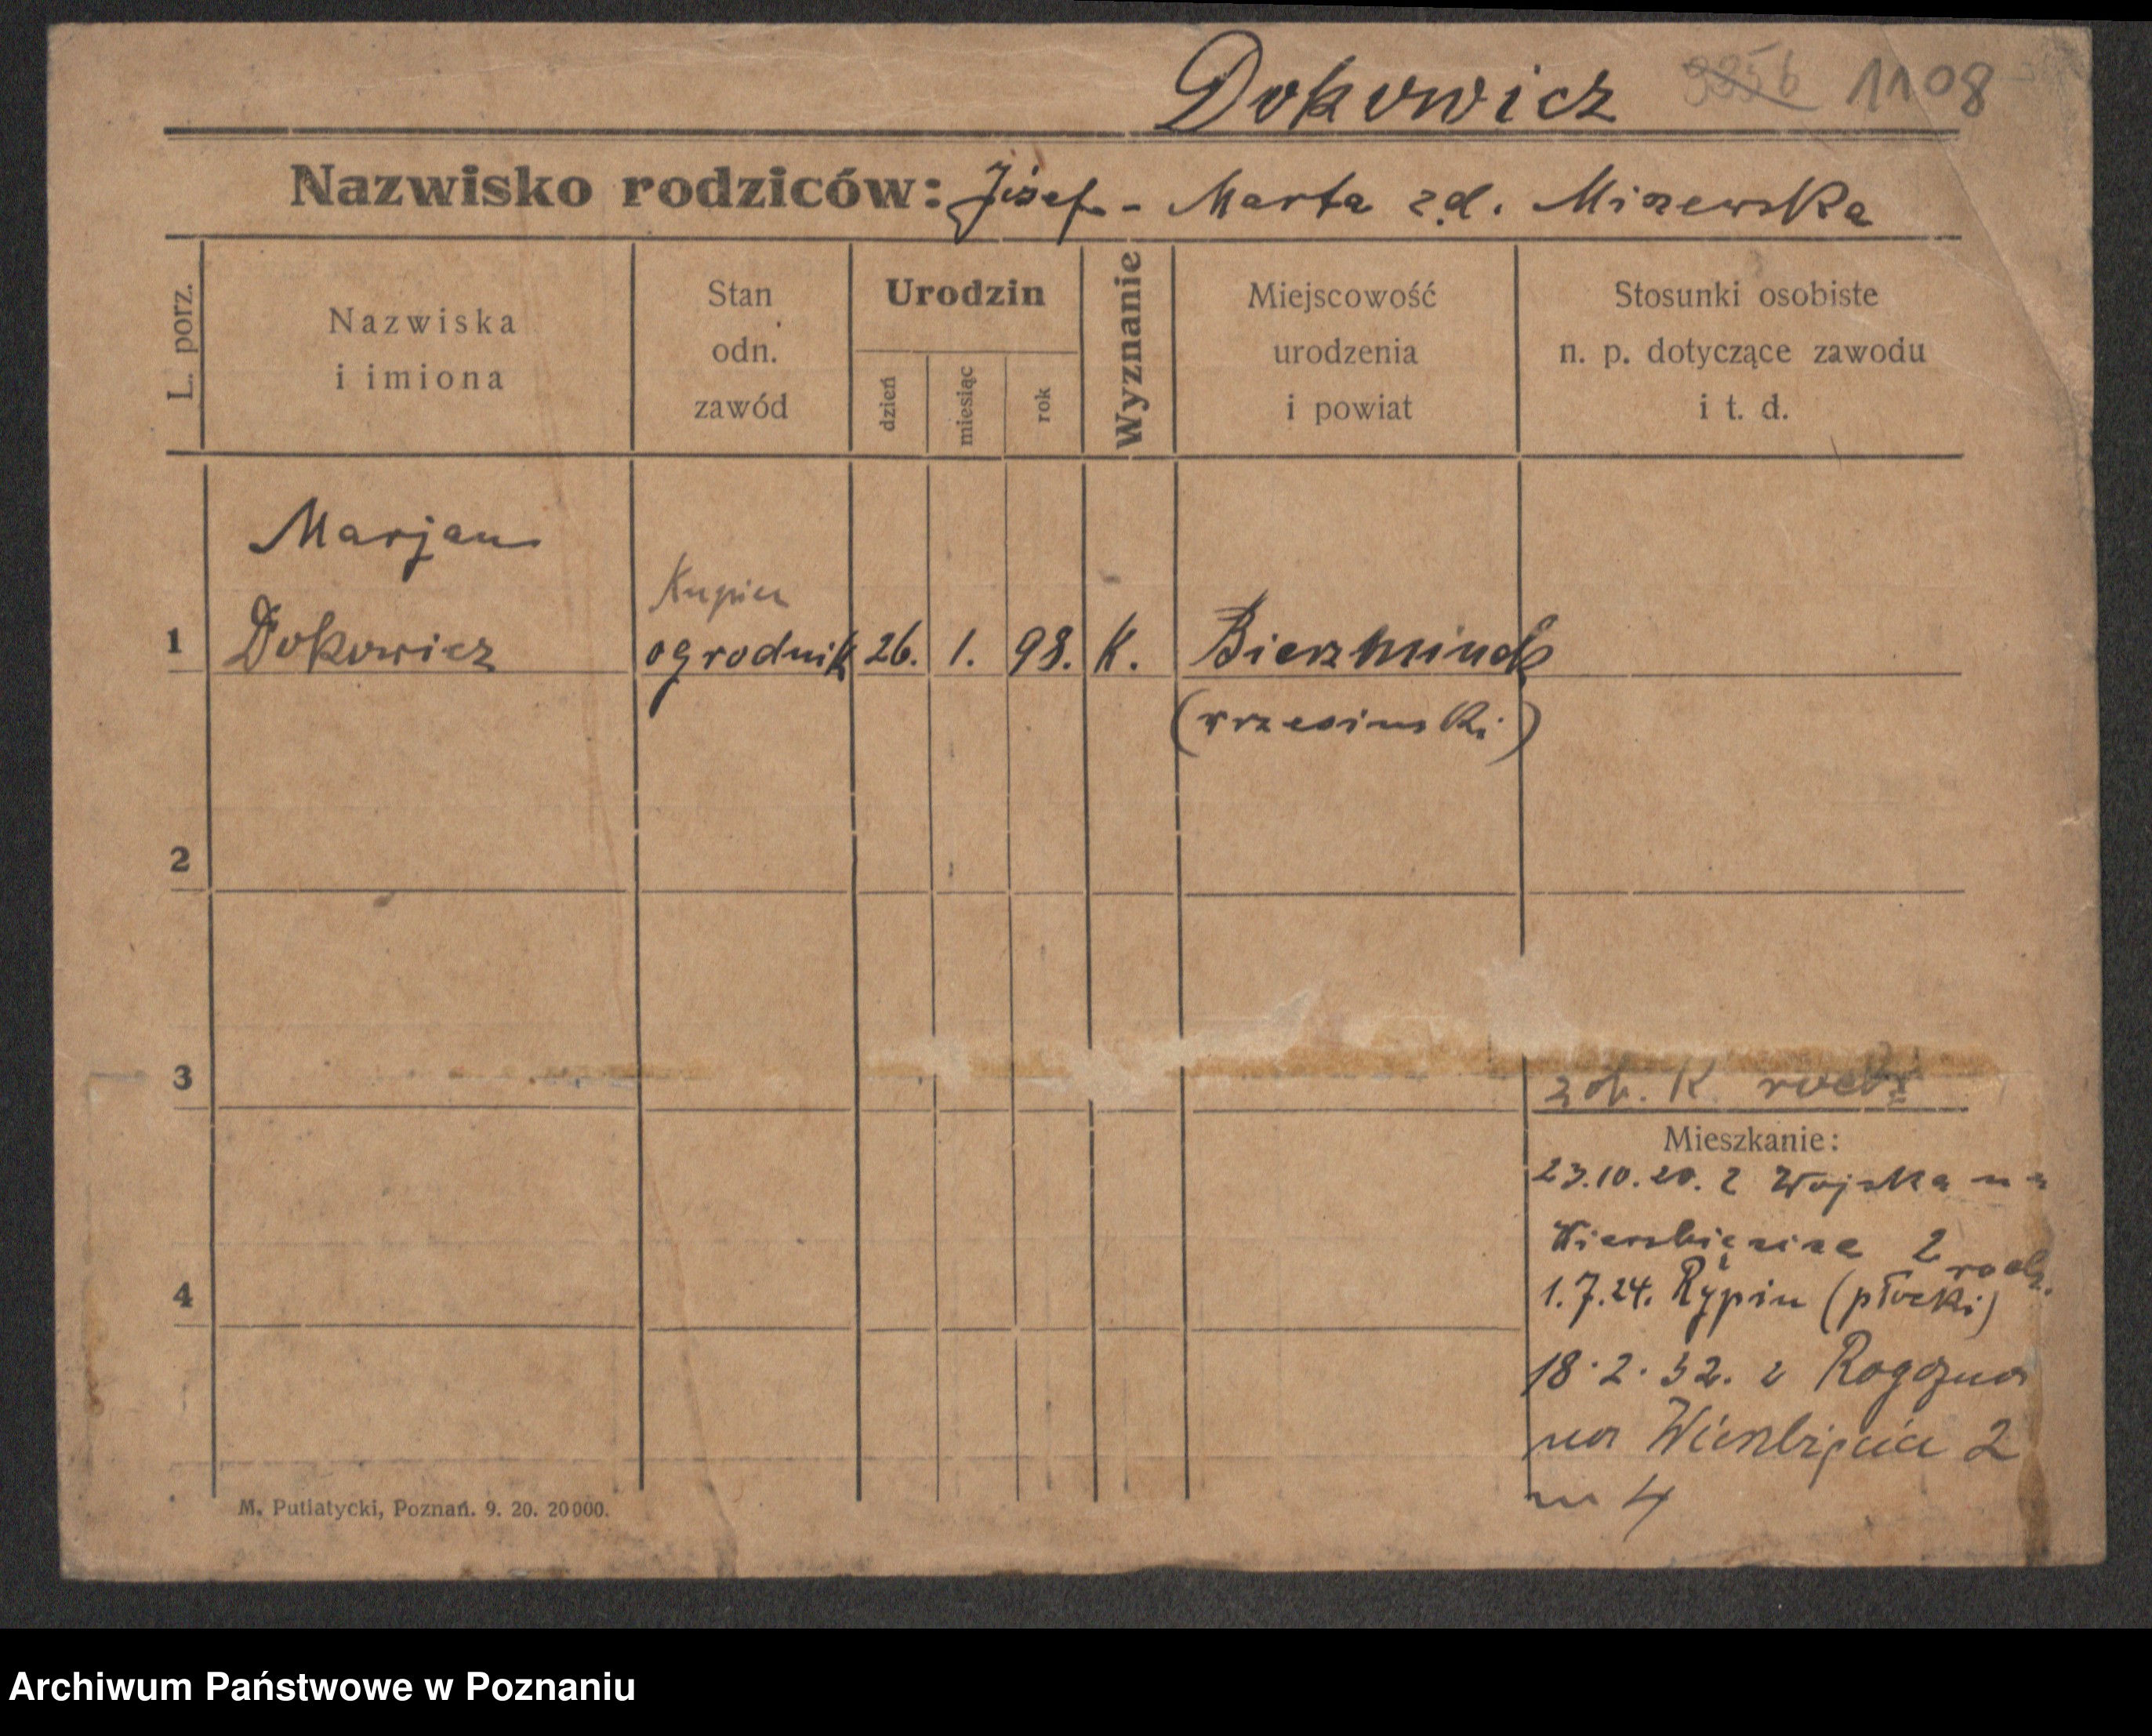 Dokowicz 9856 1108
Nazwisko rodziców: Józef - Marta z d. Mizewska
L. porz.
Nazwiska
i imiona
Stan
odn.
zawód
Urodzin
dzień
miesiąc
rok
Wyznanie
Miejscowość
urodzenia
i powiat
Stosunki osobiste
n. p. dotyczące zawodu
i t. d.
Marjan
Kupiec
1 Dokowicz ogrodnik 26. 1. 98. K.
(wrzesiński)
2
3
zob. K. rodz.
Mieszkanie:
23.10.20. z Wojska na
Wierzbięcice 2 rodz.
4
1.7.24. Rypin (płocki)
18.2.32. z Rogozna
na Wierzbięcice 2
m 4
M. Putiatycki, Poznań. 9. 20. 20000.
Archiwum Państwowe w Poznaniu